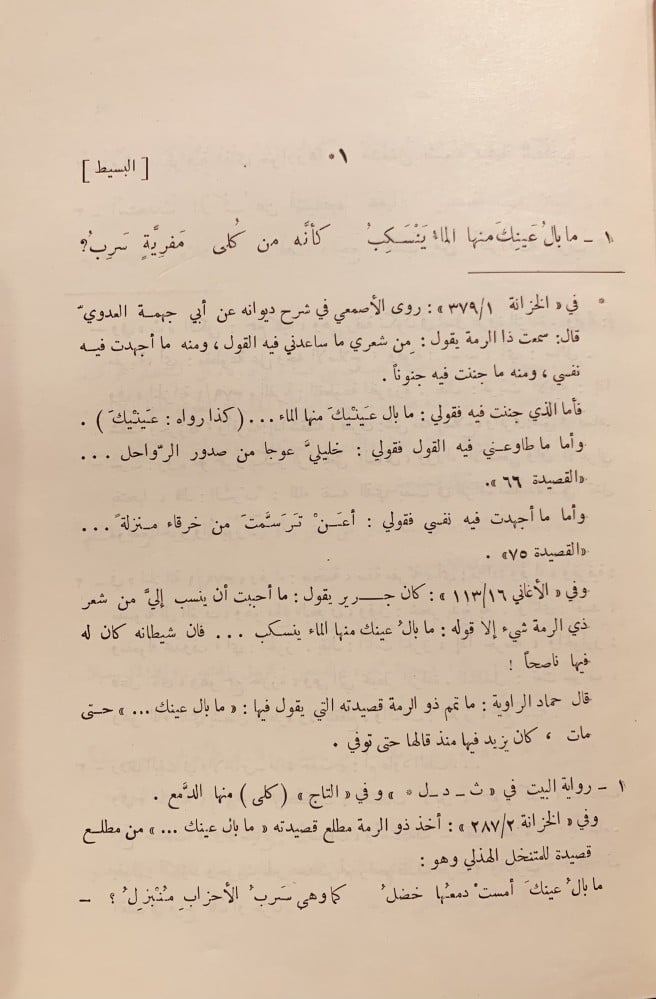 *١
[ البسيط ]
١ – ما بالُ عَينِكَ منها الماءُ يَنْسَكِبُ كأنَّه من كُلى مَفرِيَّةٍ سَرِبُ؟
* في « الخزانة ٣٧٩/١ » : روى الأصمعي في شرح ديوانه عن أبي جهمة العدويّ
قال: سمعت ذا الرمة يقول : مِن شعري ما ساعدني فيه القول ، ومنه ما أجهدت فيه
نفسي ، ومنه ما جننت فيه جنوناً .
فأما الذي جننت فيه فقولي : ما بال عَينْيكَ منها الماء ... ( كذا رواه : عَينْيكَ ) .
وأما ما طاوعني فيه القول فقولي : خليليَّ عوجا من صدور الرّواحل ...
«القصيدة ٦٦ ».
وأما ما أجهدت فيه نفسي فقولي : أعَنْ تَرَسَّمتَ من خرقاء منزلةً ...
«القصيدة ٧٥» .
وفي « الأغاني ١١٣/١٦ » : كان جرير يقول : ما أحببت أن ينسب إليَّ من شعر
ذي الرمة شيء إلا قوله : ما بالُ عينك منها الماء ينسكب ... فان شيطانه كان له
فيها ناصحاً !
قال حماد الراوية : ما تمم ذو الرمة قصيدته التي يقول فيها : « ما بال عينك ... » حتى
مات ، كان يزيد فيها منذ قالها حتى توفي .
١ – رواية البيت في « ث – د – ل * » وفي « التاج » ( كلى ) منها الدّمع .
وفي « الخزانة ٢٨٧/٢ » : أخذ ذو الرمة مطلع قصيدته « ما بال عينك ... » من مطلع
قصيدة للمتنخل الهذلي وهو :
ما بالُ عينكَ أمستْ دمعُها خضلُ كما وهي سَربُ الأحزابِ مُنْبزِلُ ؟ –